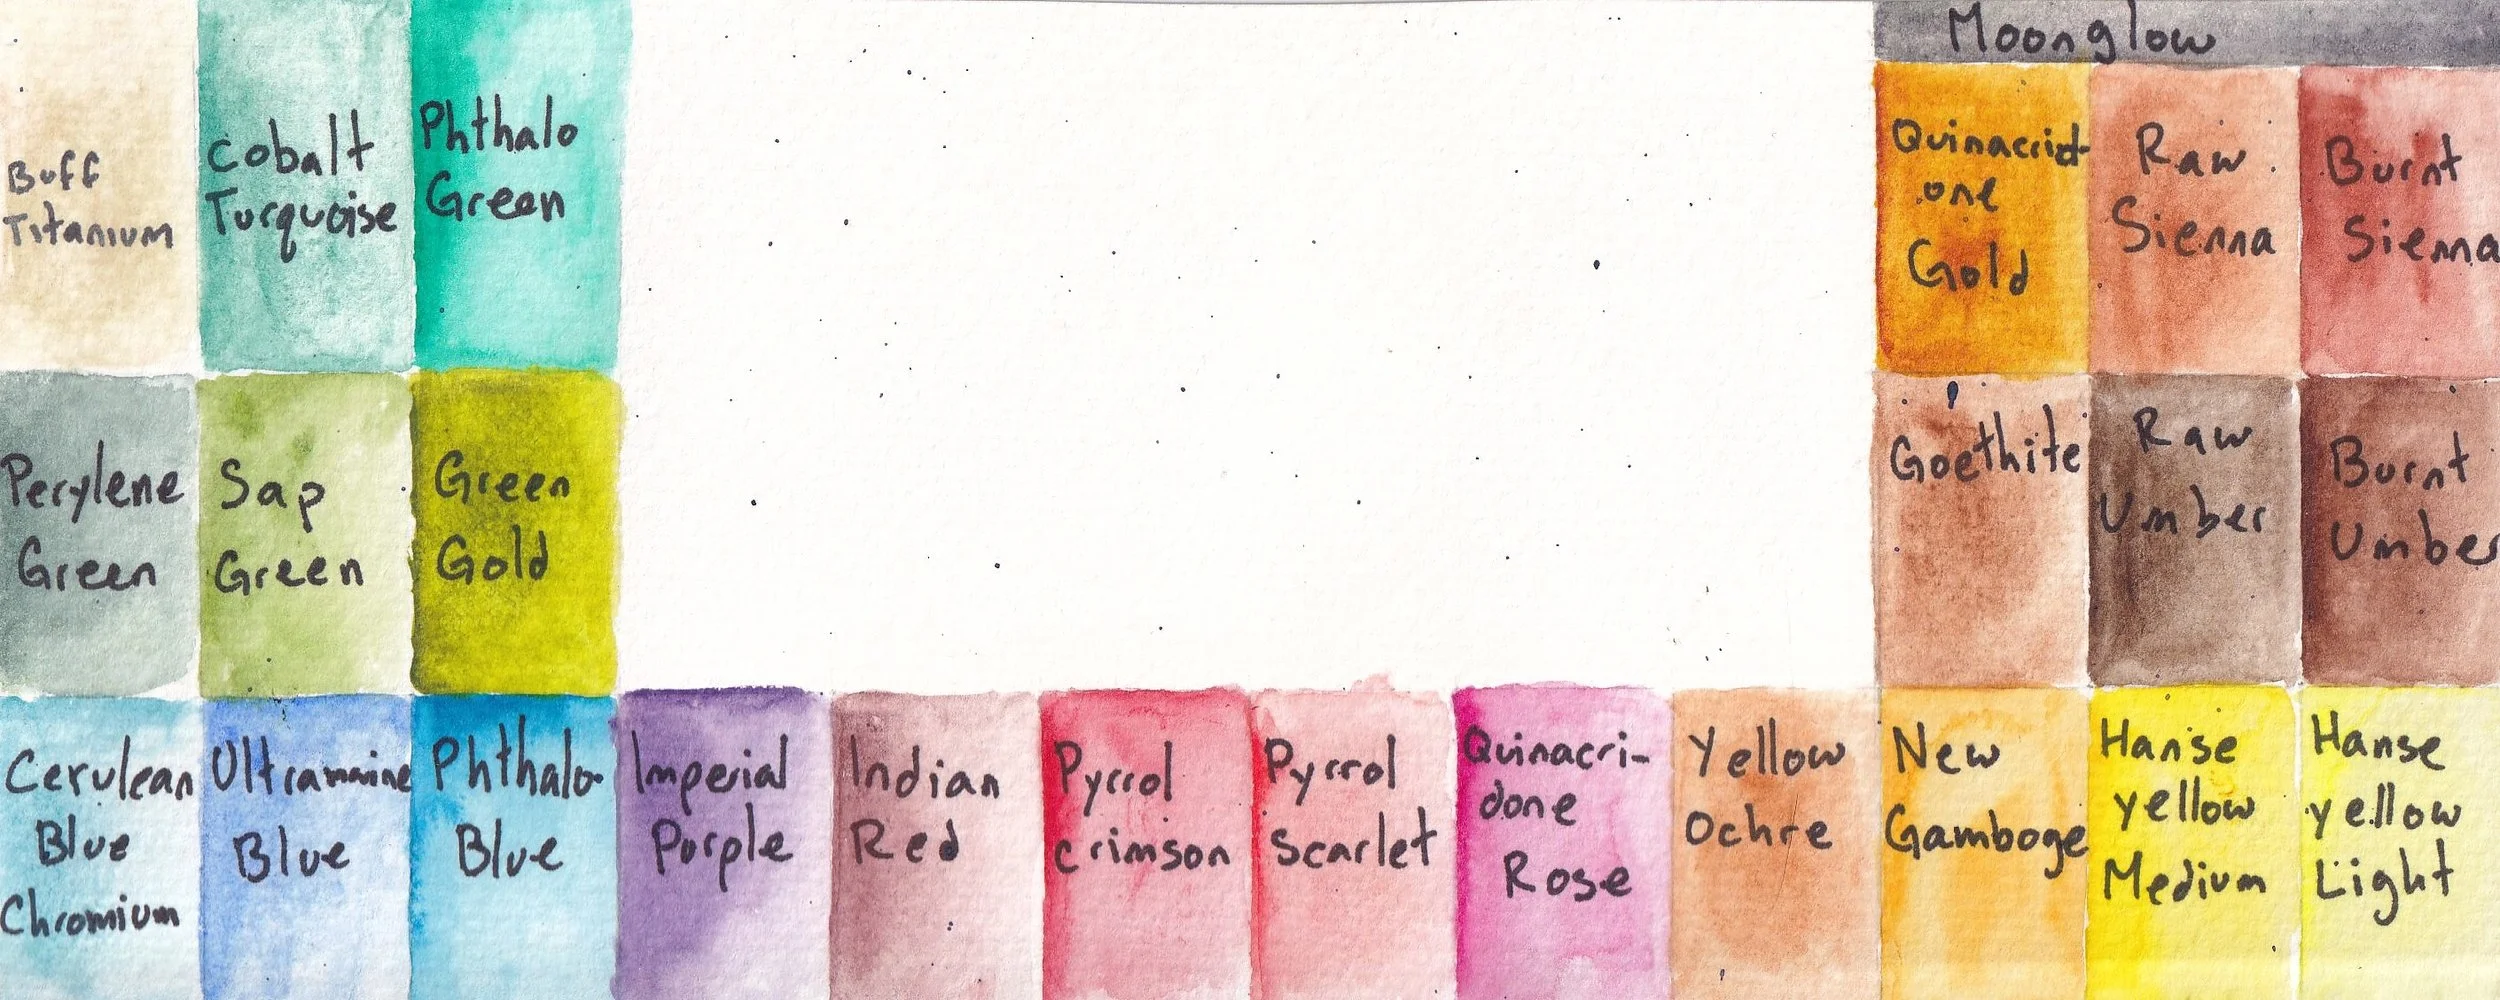 Moonglow
Buff
Titanium
Cobalt
Turquoise
Phthalo
Green
Quinacrid-
one
Gold
Raw
Sienna
Burnt
Sienna
Perylene
Green
Sap
Green
Green
Gold
Goethite
Raw
Umber
Burnt
Umber
Cerulean
Blue
Chromium
Ultramarine
Blue
Phthalo
Blue
Imperial
Purple
Indian
Red
Pyrrol
crimson
Pyrrol
scarlet
Quinacri-
done
Rose
Yellow
Ochre
New
Gamboge
Hanse
yellow
Medium
Hanse
yellow
Light